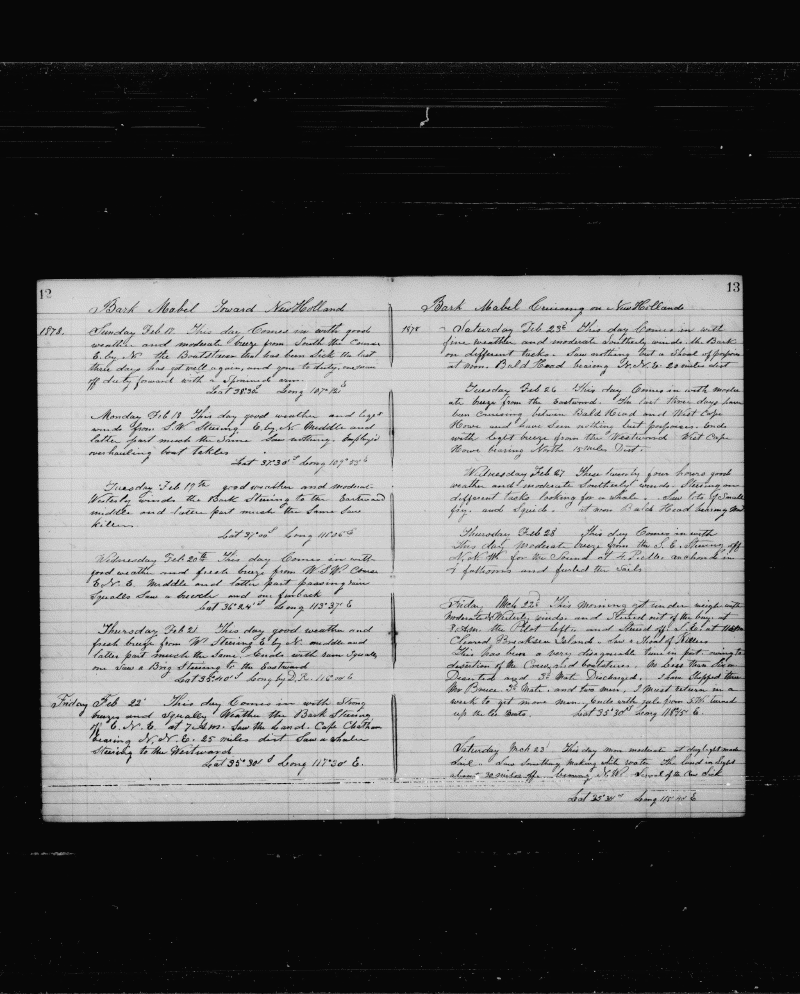 12
Bark Mabel Toward New Holland
1878.
Sunday Feb 17. This day Comes in with good
weather and moderate breeze from South the Course
E. by N the Boatsteerer that has been Sick the last
three days has got well again, and gone to duty, one man
off duty forward with a Sprained arm.
Lat 38°30' S Long 107°12' E
Monday Feb 18 This day good weather and light
winds from S.W Steering E. by N Middle and
latter part much the Same Saw nothing. Employed
overhauling boat tackles
Lat 37°30' S Long 109°
Tuesday Feb 19th good weather and moderate
Westerly winds the Bark Steering to the Eastward
middle and latter part much the Same Saw
killers
Lat 37°00' S Long 111°36' E
Wednesday Feb 20th This day Comes in with
good weather and fresh breeze from W.S.W. Course
E.N.E. Middle and latter part passing rain
Squalls Saw a breach and one finback
Lat 36°24' S Long 113°37' E
Thursday Feb 21 This day good weather and
fresh breeze from W. Steering E. by N. middle and
latter part much the Same, Ends with rain Squalls
one Saw a Brig Steering to the Eastward
Lat 35°40' S Long by D.R. 116°00 E
Friday Feb 22 This day Comes in with Strong
breezes and Squally Weather the Bark Steering
off E.N.E. at 7 A.M. Saw the Land. Cape Chatham
bearing N.N.E. 25 miles dist Saw a whaler
Steering to the Westward
Lat 35°30' S Long 117°20' E.
13
Bark Mabel Cruising on New Holland
1878
Saturday Feb 23d This day Comes in with
fine weather and moderate Southerly winds. the Bark
on different tacks. Saw nothing but a Shoal of porpoises
at noon. Bald Head bearing N.N.E. 20 miles dist
Tuesday Feb 26 This day Comes in with moder
ate breeze from the Eastward. The last three days have
been Cruising between Bald Head and West Cape
Howe and have seen nothing but porpoises. Ends
with light breeze from the Westward West Cape
Howe bearing North 15 miles Dist.
Wednesday Feb 27 These twenty four hours good
weather and moderate Southerly winds. Steering on
different tacks looking for a whale. Saw lots of Small
fry. and Squid. at noon Bald Head bearing
Thursday Feb 28 This day Comes in with
This day moderate breeze from the S.E. Steering off
N.N.W. for the Sound at 4 P.M. anchored in
fathoms and furled the Sails
Friday Mch 22d This Morning got under weigh with
Moderate Westerly winds and Steered out of the bay. at
8 A.M. the Pilot left. and Steered off S.E. at
Cleared Breaksea Island. Saw a Shoal of Killers
This has been a very disagreeable time in port owing to
desertion of the Crew, and boatsteerers. No less than
Deserted and 3d Mate Discharged. I have Shipped three
Mr Bruce 3d Mate, and two men, I must return in a
week to get more men, Ends with gale from S.W. turned
up the Mate. Lat 35°30' S Long 118° E
Saturday Mch 23 This day more moderate at daylight made
Sail. Saw Something making white water The land in Sight
about 30 miles off. bearing N.W. Several of the Crew Sick
Lat 35°30' S Long 118° E